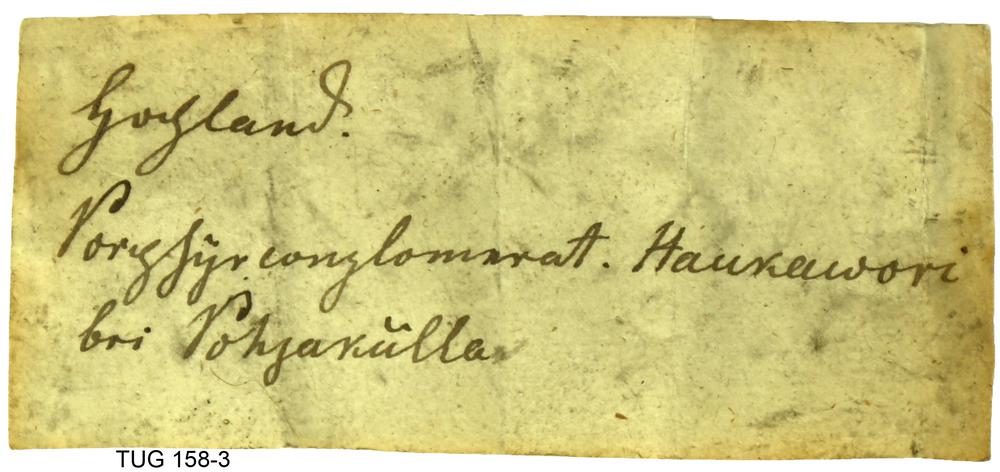 Hochland.
Porphÿrconglomerat. Haukawori
bei Pohjakülla
TUG 158-3